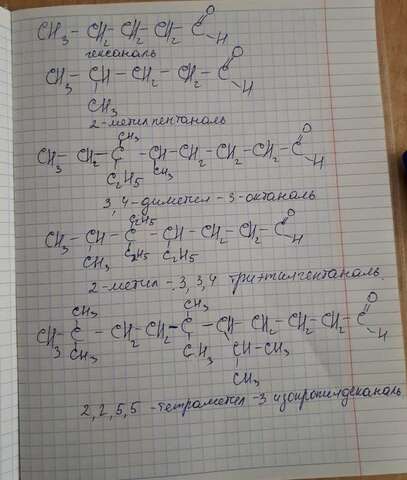 CH₃ – CH₂ – CH₂ – CH₂ – C
O
H
гексаналь
CH₃ – CH – CH₂ – CH₂ – C
O
H
CH₃
2-метилпентаналь
CH₃
CH₃ – CH₂ – C – CH – CH₂ – CH₂ – CH₂ – C
O
H
C₂H₅ CH₃
3,4-диметил-3-октаналь
C₂H₅
CH₃ – CH – C – CH – CH₂ – CH₂ – C
O
H
CH₃ C₂H₅ C₂H₅
2-метил-3,3,4 триэтилгептаналь
CH₃ CH₃
CH₃ – C – CH₂ – CH₂ – C – CH – CH₂ – CH₂ – CH₂ – C
O
H
CH₃ CH₃ CH – CH₃
CH₃
2,2,5,5-тетраметил-3 изопропилдеканаль